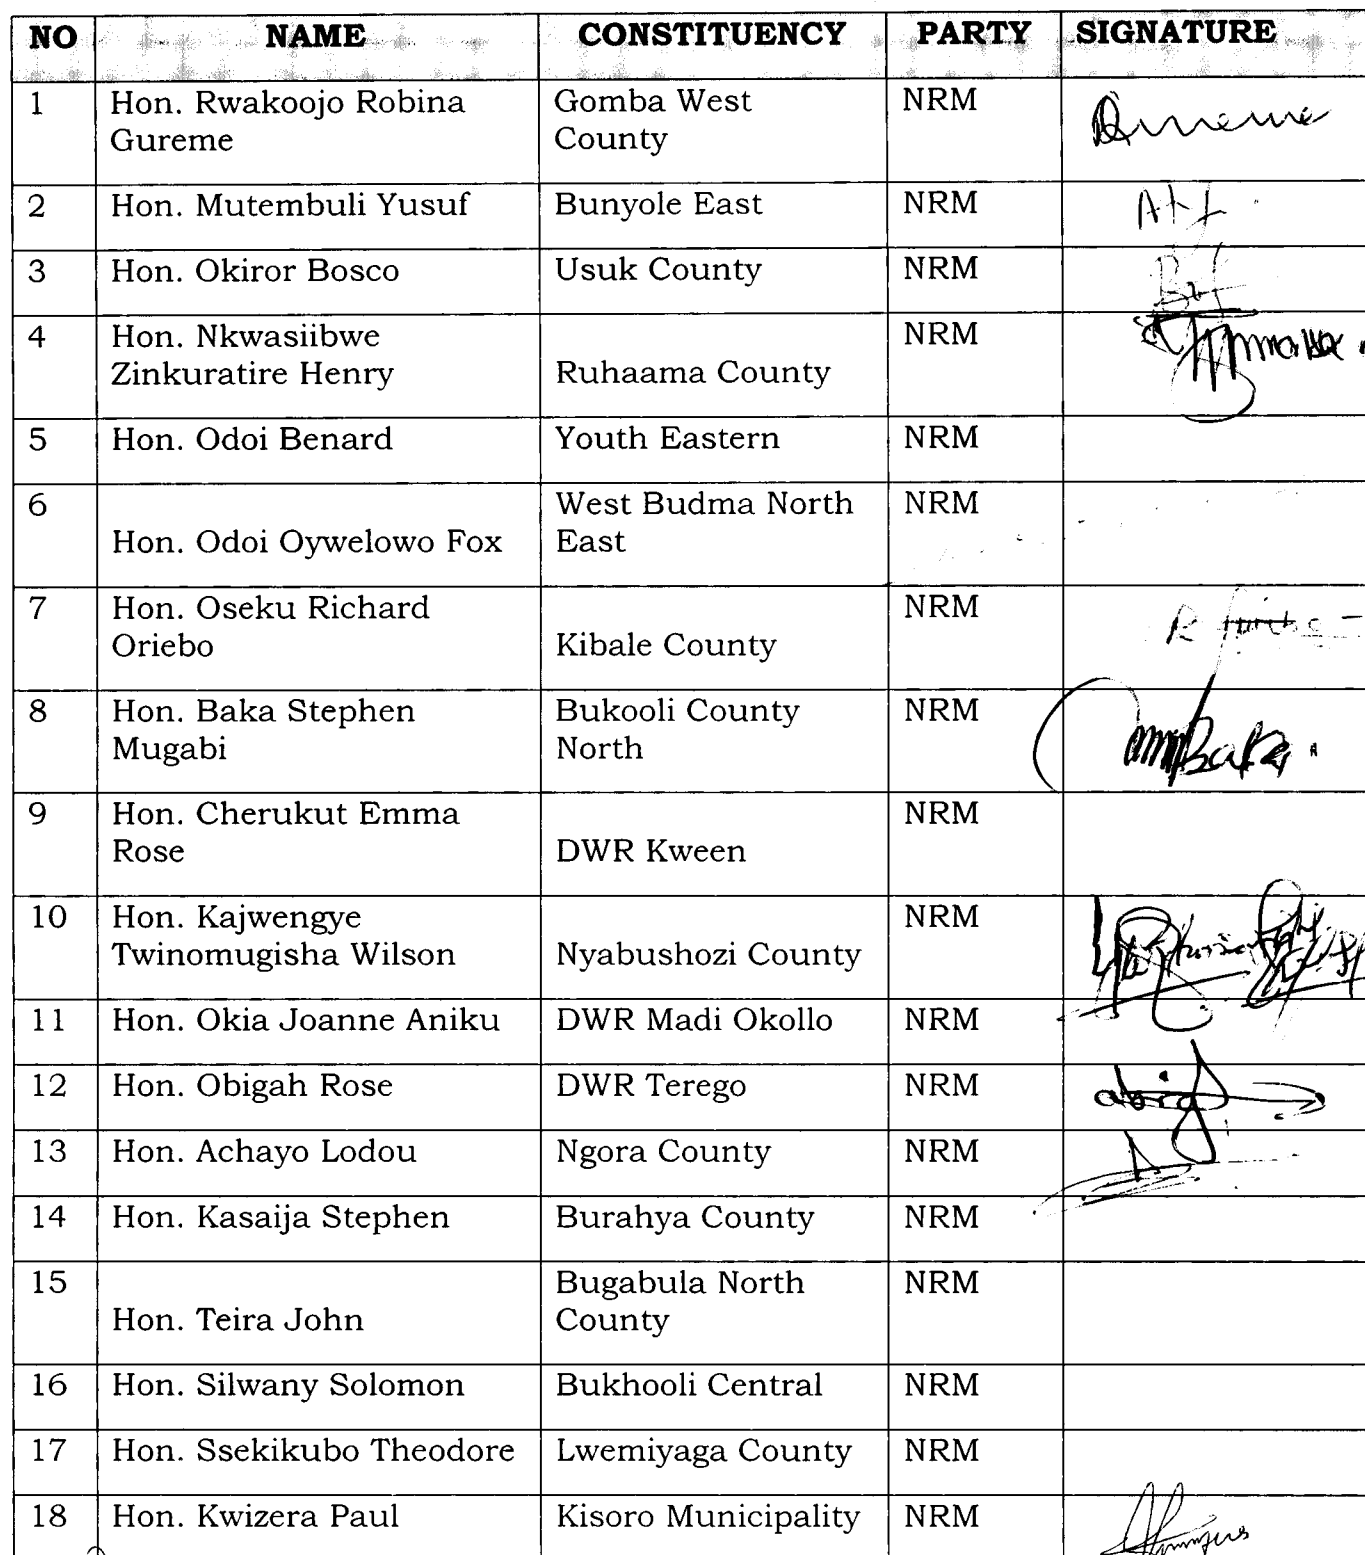 NO NAME CONSTITUENCY PARTY SIGNATURE
1 Hon. Rwakoojo Robina Gomba West NRM
Gureme County
2 Hon. Mutembuli Yusuf Bunyole East NRM
3 Hon. Okiror Bosco Usuk County NRM
4 Hon. Nkwasiibwe NRM
Zinkuratire Henry Ruhaama County
5 Hon. Odoi Benard Youth Eastern NRM
6 West Budma North NRM
Hon. Odoi Oywelowo Fox East
7 Hon. Oseku Richard NRM
Oriebo Kibale County
8 Hon. Baka Stephen Bukooli County NRM
Mugabi North
Baka
9 Hon. Cherukut Emma NRM
Rose DWR Kween
10 Hon. Kajwengye NRM
Twinomugisha Wilson Nyabushozi County
11 Hon. Okia Joanne Aniku DWR Madi Okollo NRM
12 Hon. Obigah Rose DWR Terego NRM
13 Hon. Achayo Lodou Ngora County NRM
14 Hon. Kasaija Stephen Burahya County NRM
15 Bugabula North NRM
Hon. Teira John County
16 Hon. Silwany Solomon Bukhooli Central NRM
17 Hon. Ssekikubo Theodore Lwemiyaga County NRM
18 Hon. Kwizera Paul Kisoro Municipality NRM